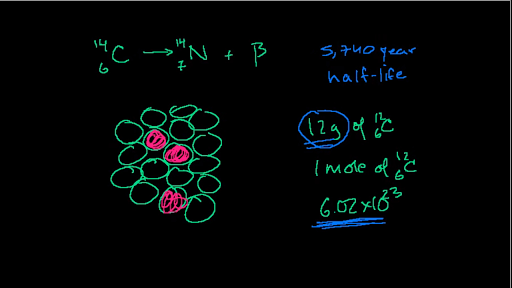 ¹⁴₆C → ¹⁴₇N + β
5,740 year
half-life
12g of ¹²₆C
1 mole of ¹²₆C
6.02×10²³